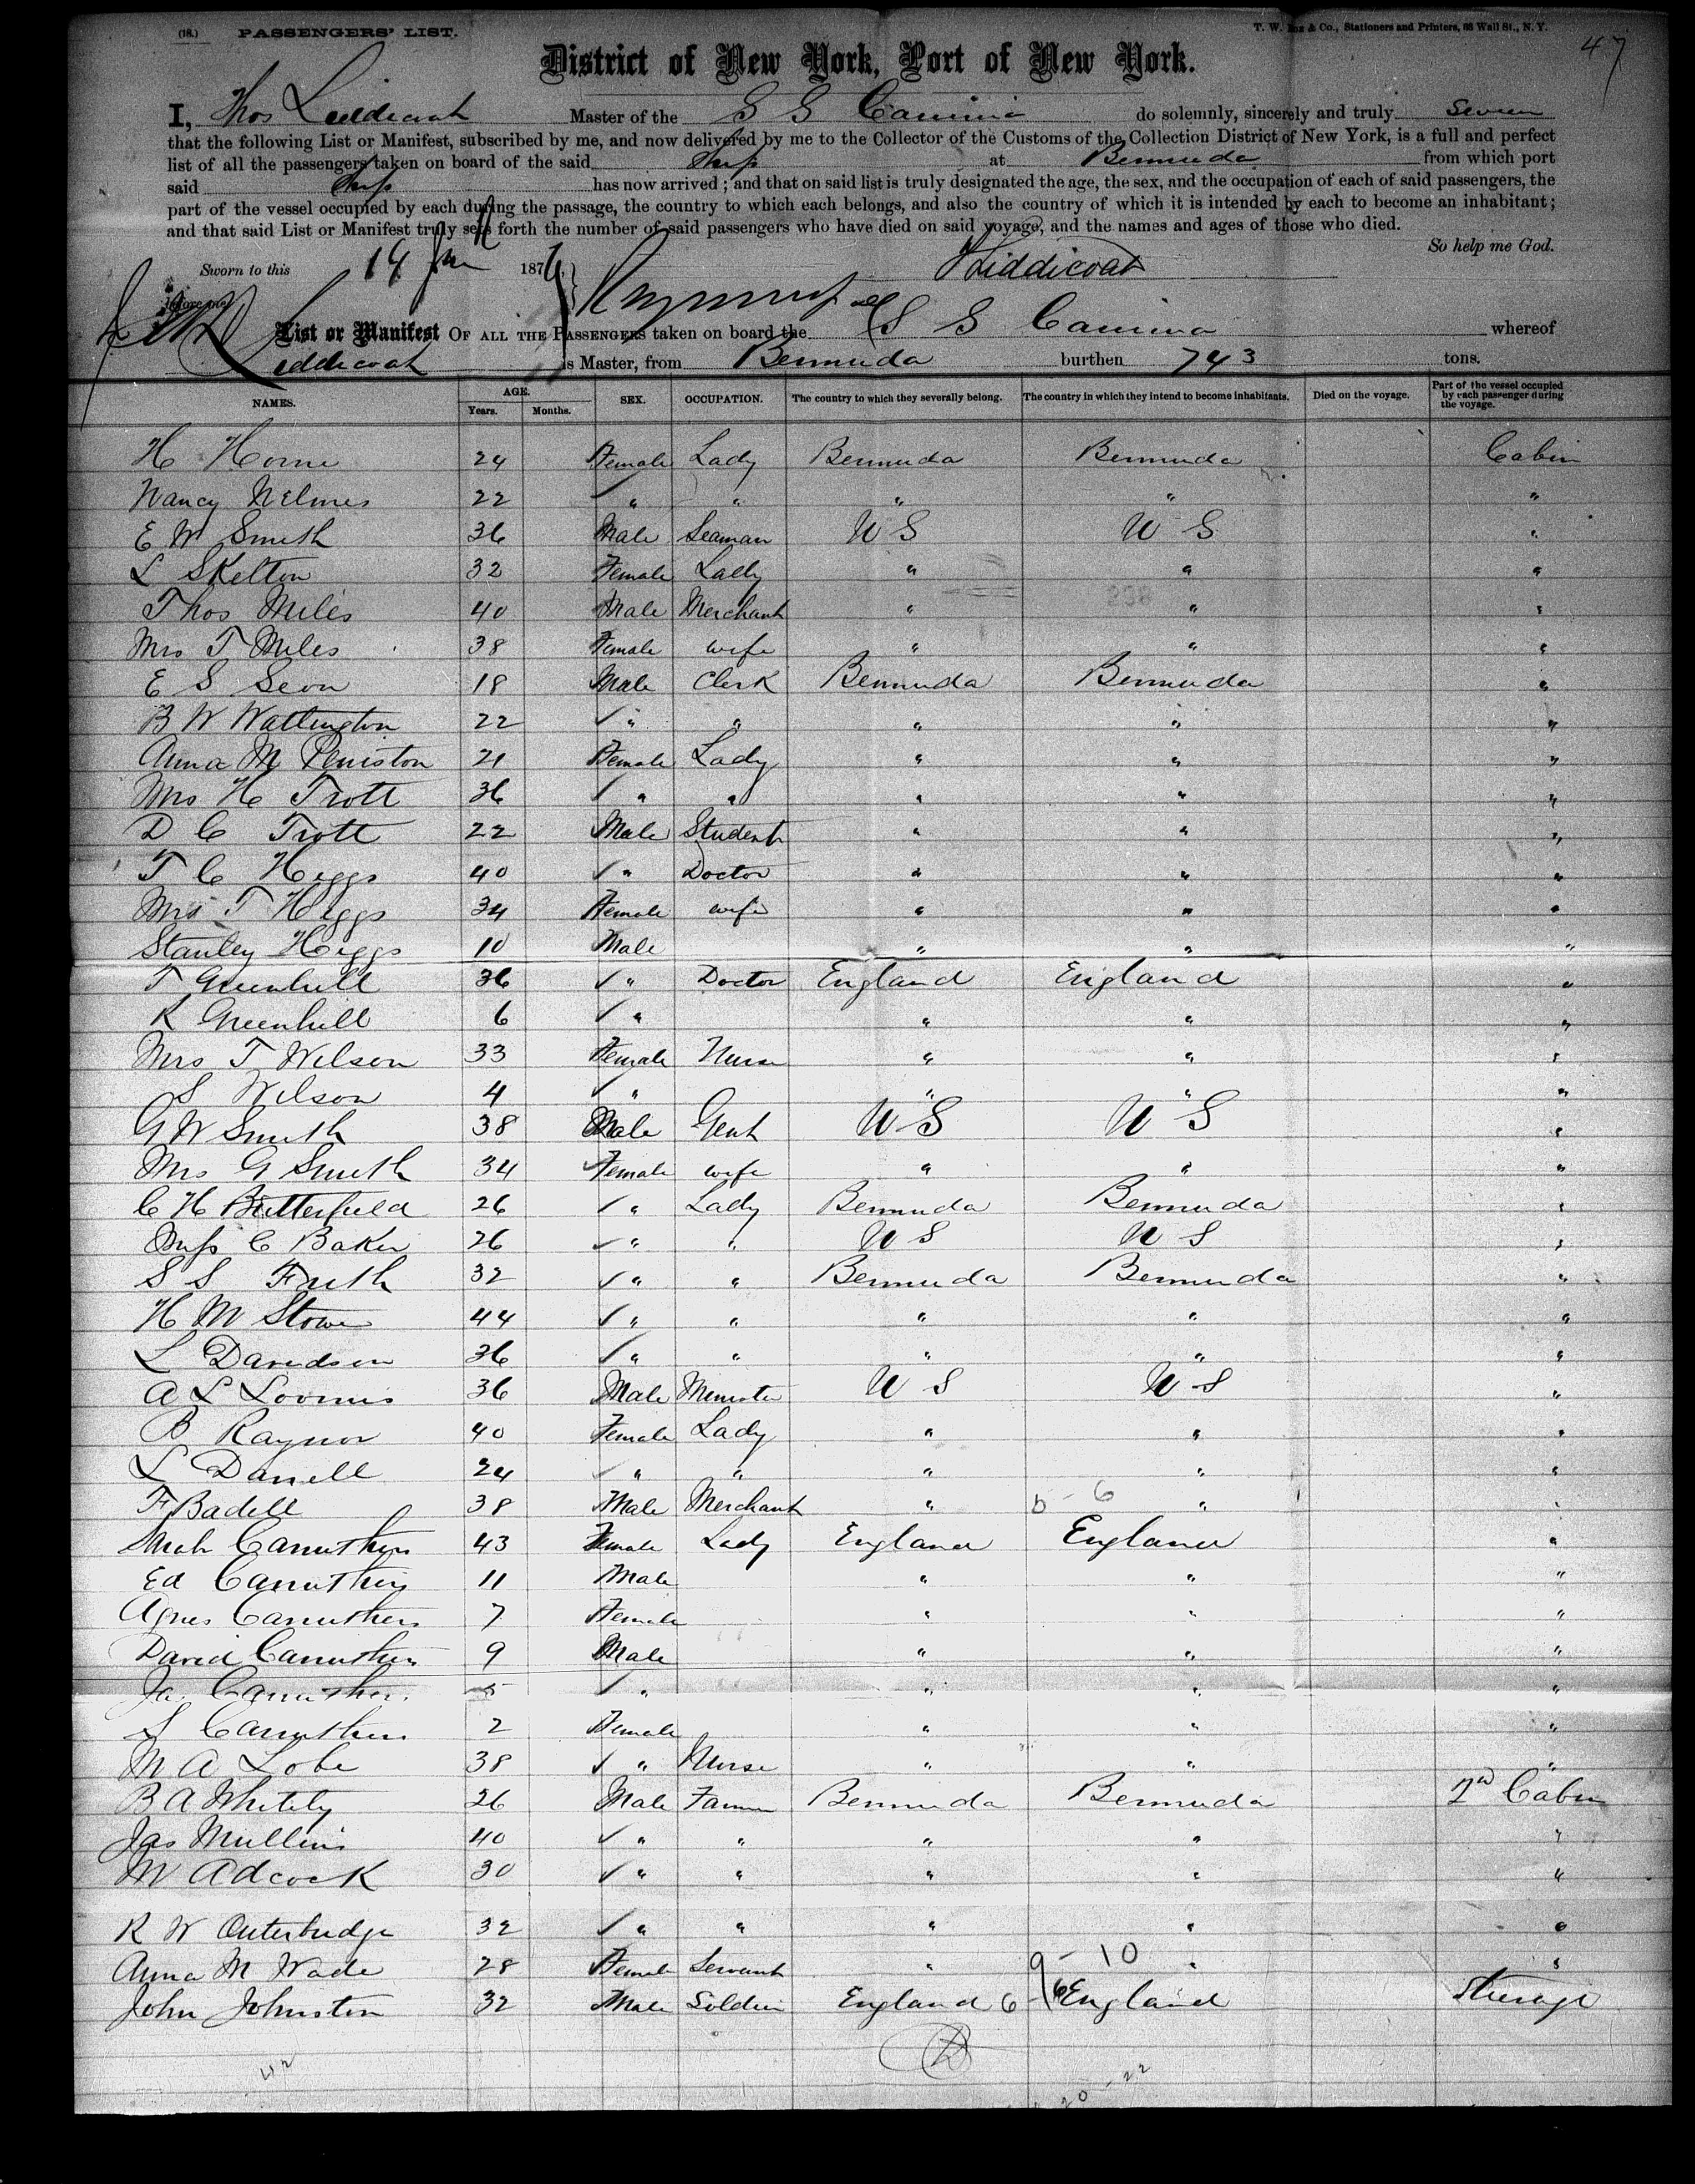 (18.) PASSENGERS' LIST. T. W. & Co., Stationers and Printers, 86 Wall St., N. Y.
47
District of New York, Port of New York.
I, Thos Liddicoat Master of the S S Canima do solemnly, sincerely and truly swear
that the following List or Manifest, subscribed by me, and now delivered by me to the Collector of the Customs of the Collection District of New York, is a full and perfect
list of all the passengers taken on board of the said Ship at Bermuda from which port
said Ship has now arrived; and that on said list is truly designated the age, the sex, and the occupation of each of said passengers, the
part of the vessel occupied by each during the passage, the country to which each belongs, and also the country of which it is intended by each to become an inhabitant;
and that said List or Manifest truly sets forth the number of said passengers who have died on said voyage, and the names and ages of those who died.
So help me God.
Sworn to this 14 187 Liddicoat
before me
List or Manifest OF ALL THE PASSENGERS taken on board the S S Canima whereof
Liddicoat is Master, from Bermuda burthen 743 tons.
NAMES. AGE. Years. Months. SEX. OCCUPATION. The country to which they severally belong. The country in which they intend to become inhabitants. Died on the voyage. Part of the vessel occupied by each passenger during the voyage.
H Horne 24 Female Lady Bermuda Bermuda Cabin
Nancy Nelmes 22 " " " " "
E W Smith 36 Male Seaman U S U S "
L Skelton 32 Female Lady " " "
Thos Miles 40 Male Merchant " " "
Mrs T Miles 38 Female wife " " "
E S Seon 18 Male Clerk Bermuda Bermuda "
B W Watlington 22 " " " " "
Anna M Peniston 21 Female Lady " " "
Mrs H Trott 36 " " " " "
D C Trott 22 Male Student " " "
T C Higgs 40 " Doctor " " "
Mrs T Higgs 34 Female wife " " "
Stanley Higgs 10 Male " " "
T Greenhill 36 " Doctor England England "
R Greenhill 6 " " " "
Mrs T Wilson 33 Female Nurse " " "
S Wilson 4 " " " "
G W Smith 38 Male Gent U S U S "
Mrs G Smith 34 Female wife " " "
C H Butterfield 26 " Lady Bermuda Bermuda "
Miss C Baker 26 " " U S U S "
S S Frith 32 " " Bermuda Bermuda "
H M Stowe 44 " " " " "
L Davidson 36 " " " " "
A L Loomis 36 Male Minister U S U S "
B Raynor 40 Female Lady " " "
L Darrell 24 " " " " "
F Badell 38 Male Merchant " " "
Carruthers 43 Female Lady England England "
Ed Carruthers 11 Male " " "
Agnes Carruthers 7 Female " " "
David Carruthers 9 Male " " "
Jas Carruthers 5 " " " "
S Carruthers 2 Female " " "
M A Lobe 38 " Nurse " " "
B A Whitely 26 Male Farmer Bermuda Bermuda 2nd Cabin
Jas Mullins 40 " " " " "
M Adcock 30 " " " " "
R W Outerbridge 32 " " " " "
Anna M Wade 28 Female Servant " 9 - 10 " "
John Johnston 32 Male Soldier England 6 England Steerage
20 - 22